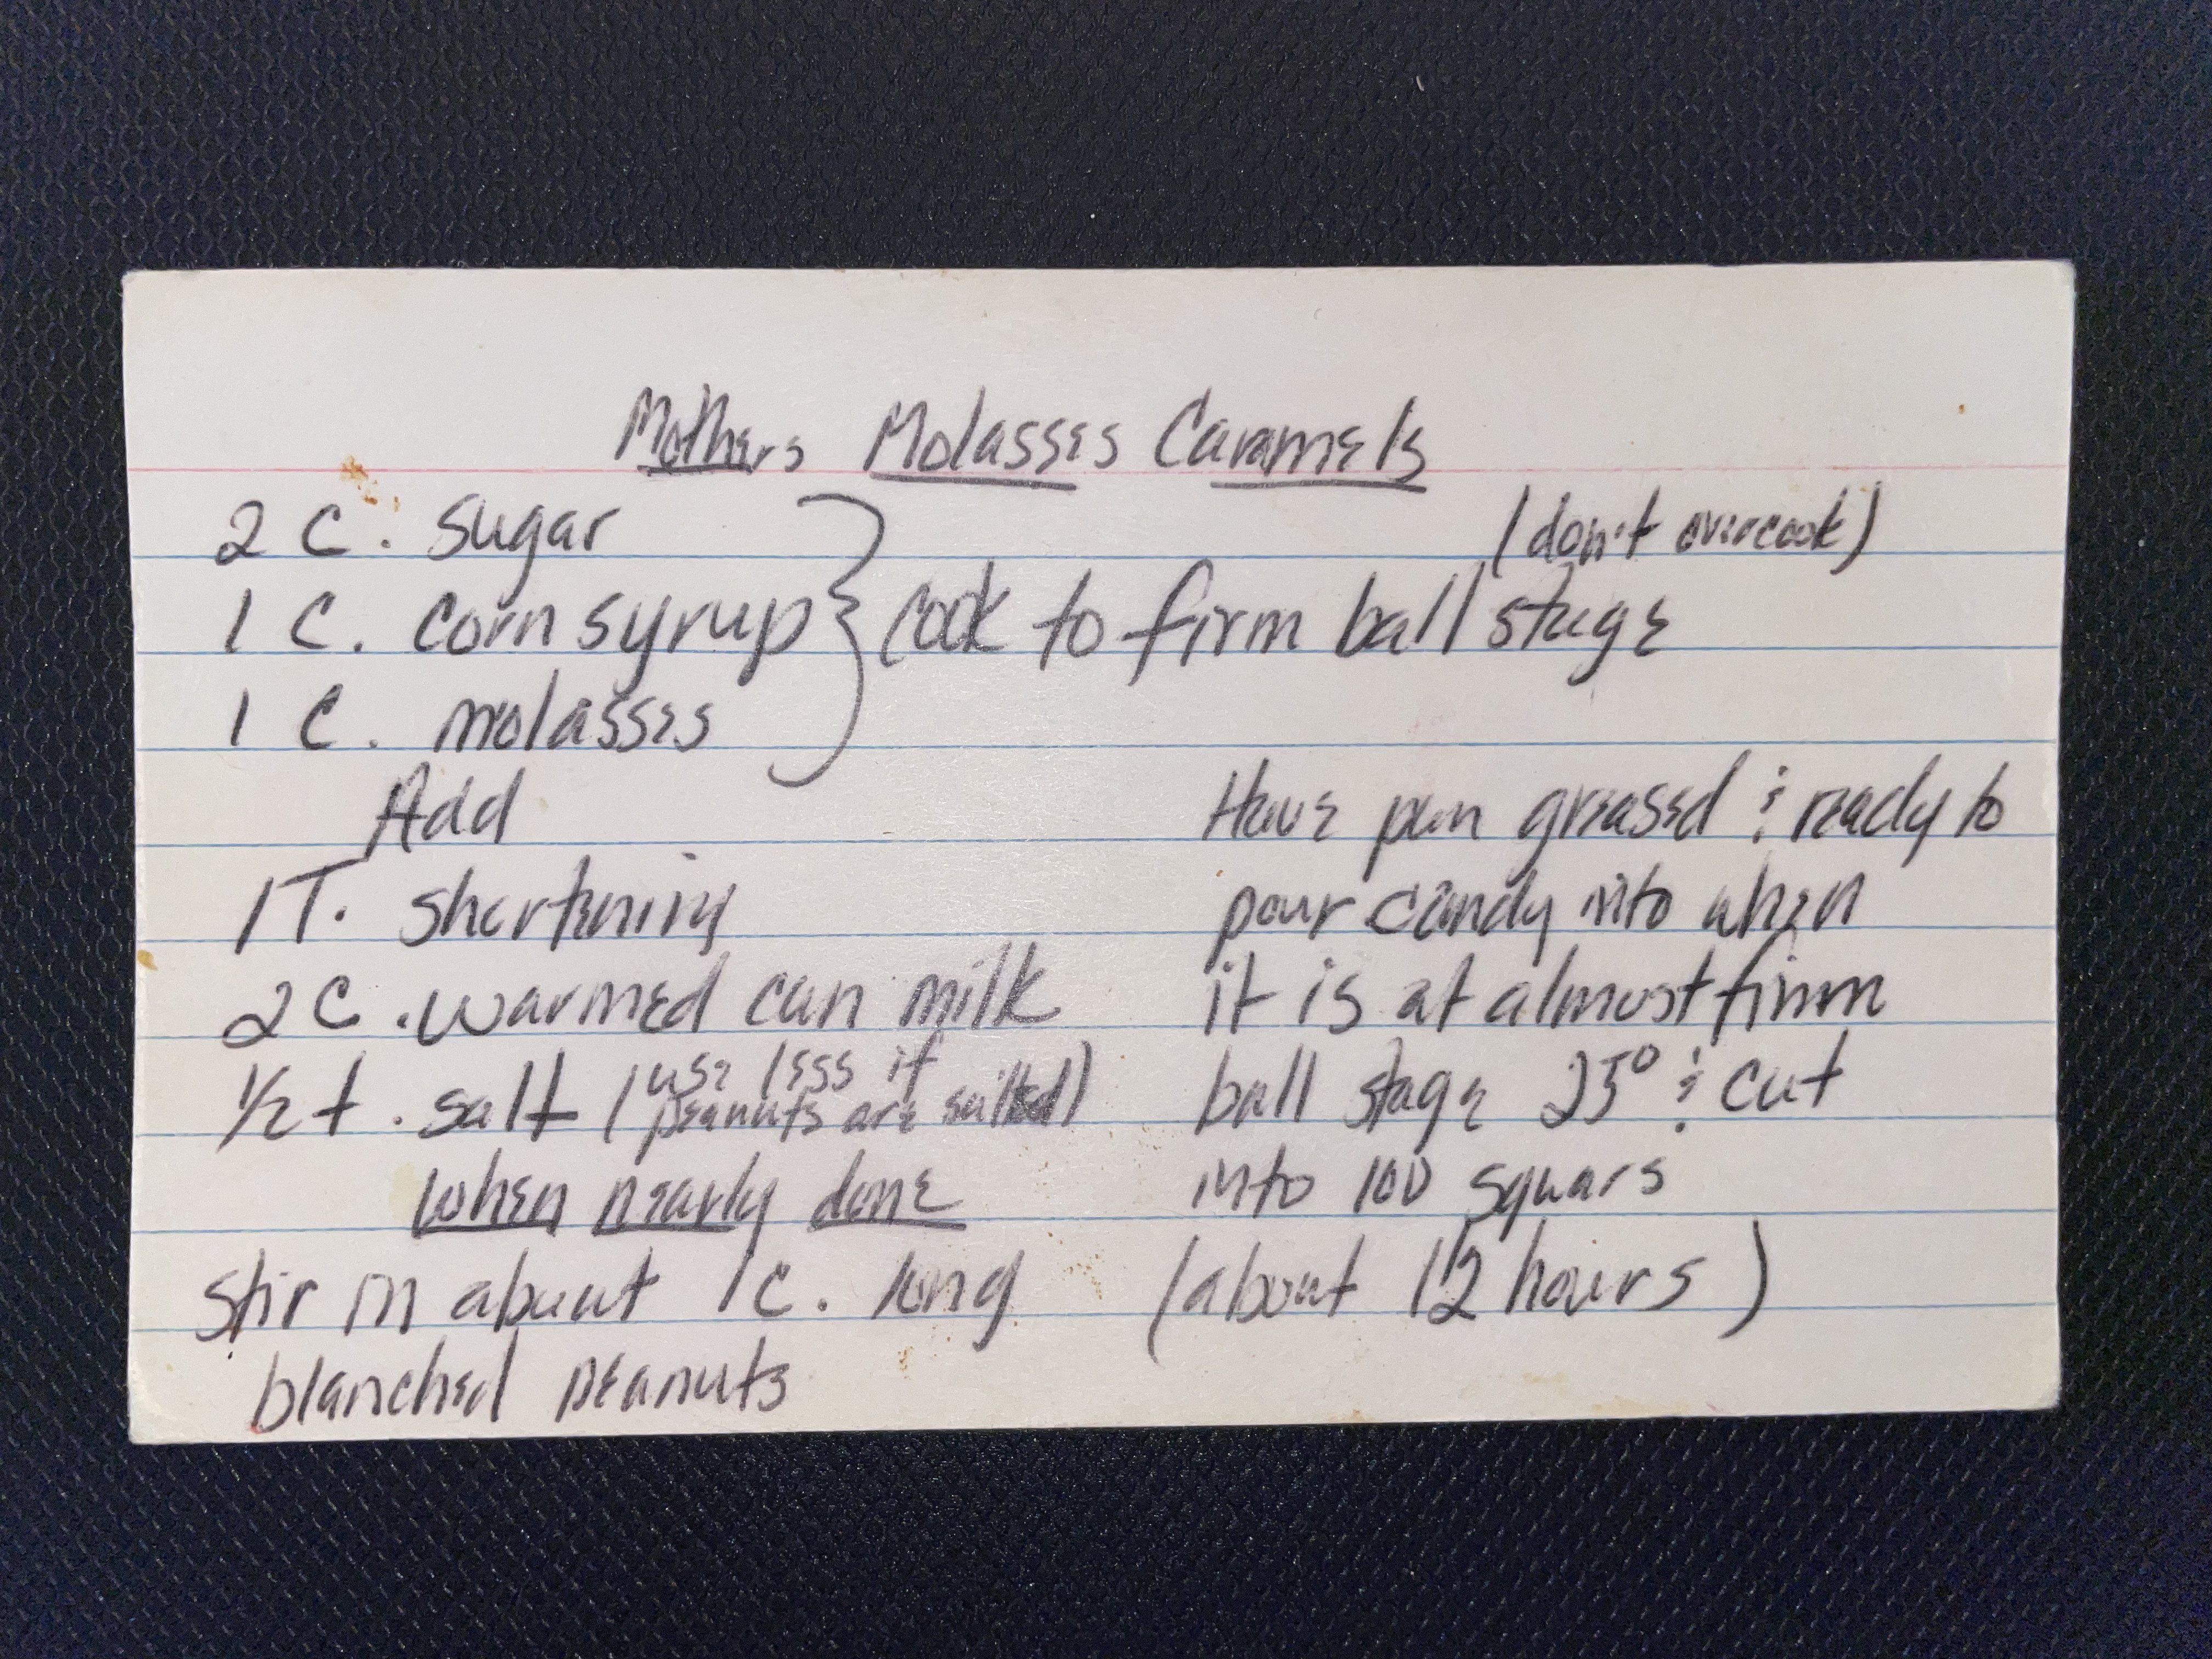 Mothers Molasses Caramels
2 C. sugar
1 C. corn syrup } cook to firm ball stage
(don't overcook)
1 C. molasses
Add
1 T. shortening
2 C. warmed can milk
1/2 t. salt (use less if
peanuts are salted)
when nearly done
stir in about 1 c. long
blanched peanuts
Have pan greased & ready to
pour candy into when
it is at almost firm
ball stage 25° & cut
into 100 squars
(about 12 hours)